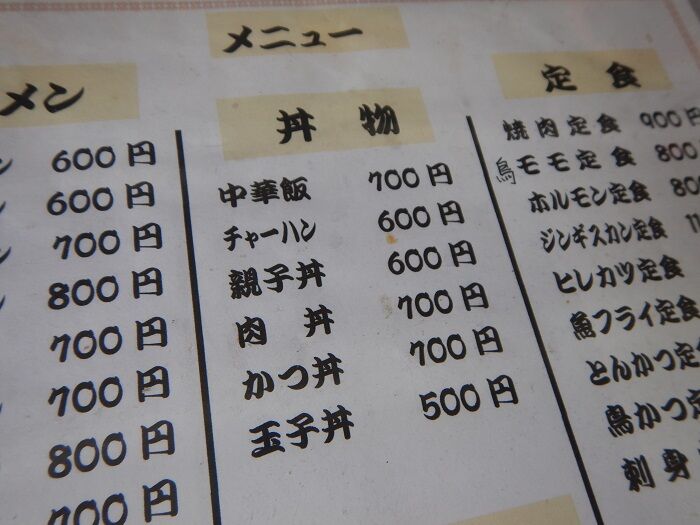 メニュー
メン
600円
600円
700円
800円
700円
700円
800円
700円
丼物
中華飯 700円
チャーハン 600円
親子丼 600円
肉丼 700円
かつ丼 700円
玉子丼 500円
定食
焼肉定食 900円
鳥モモ定食 800
ホルモン定食 80
ジンギスカン定食 1
ヒレカツ定食
魚フライ定食
とんかつ定
鳥かつ定
刺身